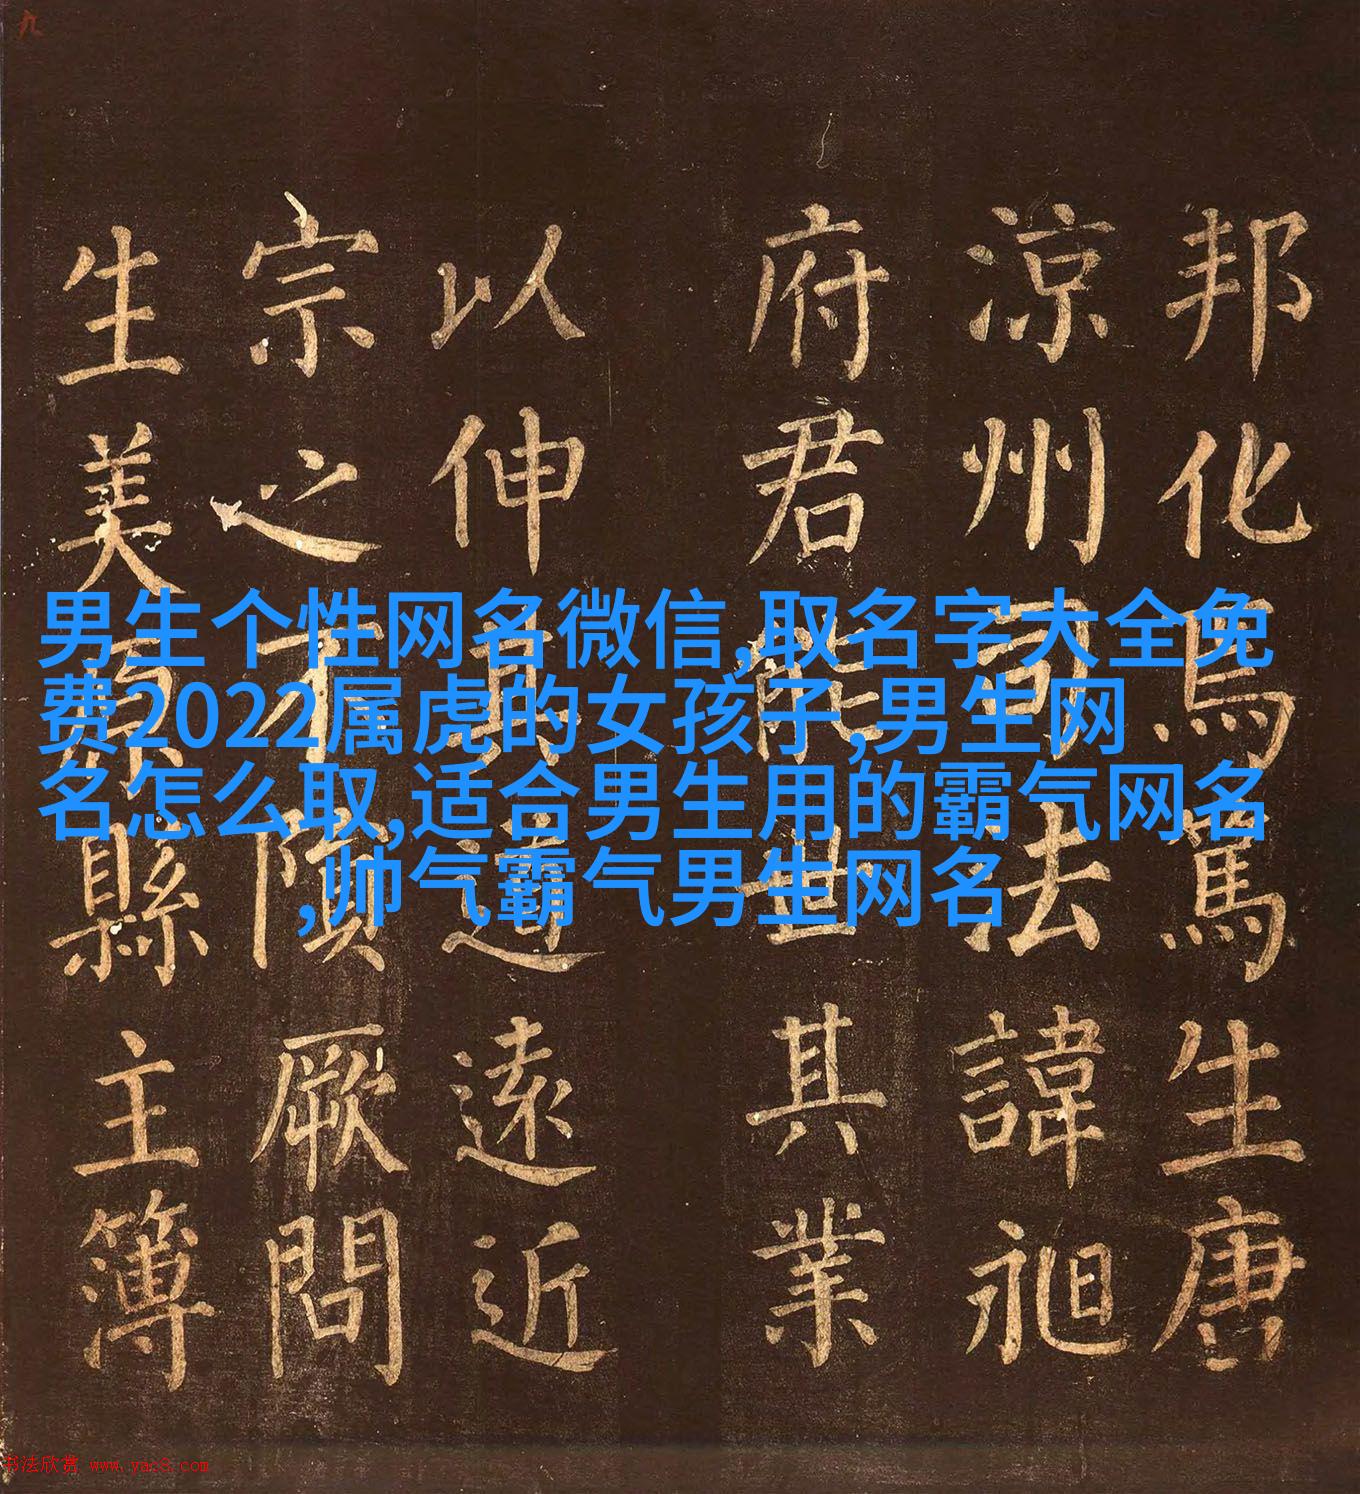 九
邦化焉篤生唐
涼州司法諱昶
府君能世其業
以伸其道遠近
宗之不隕厥問
生美原縣主簿
男生个性网名微信,取名字大全免
费2022属虎的女孩子,男生网
名怎么取,适合男生用的霸气网名
,帅气霸气男生网名
书法欣赏 www.yac8.com